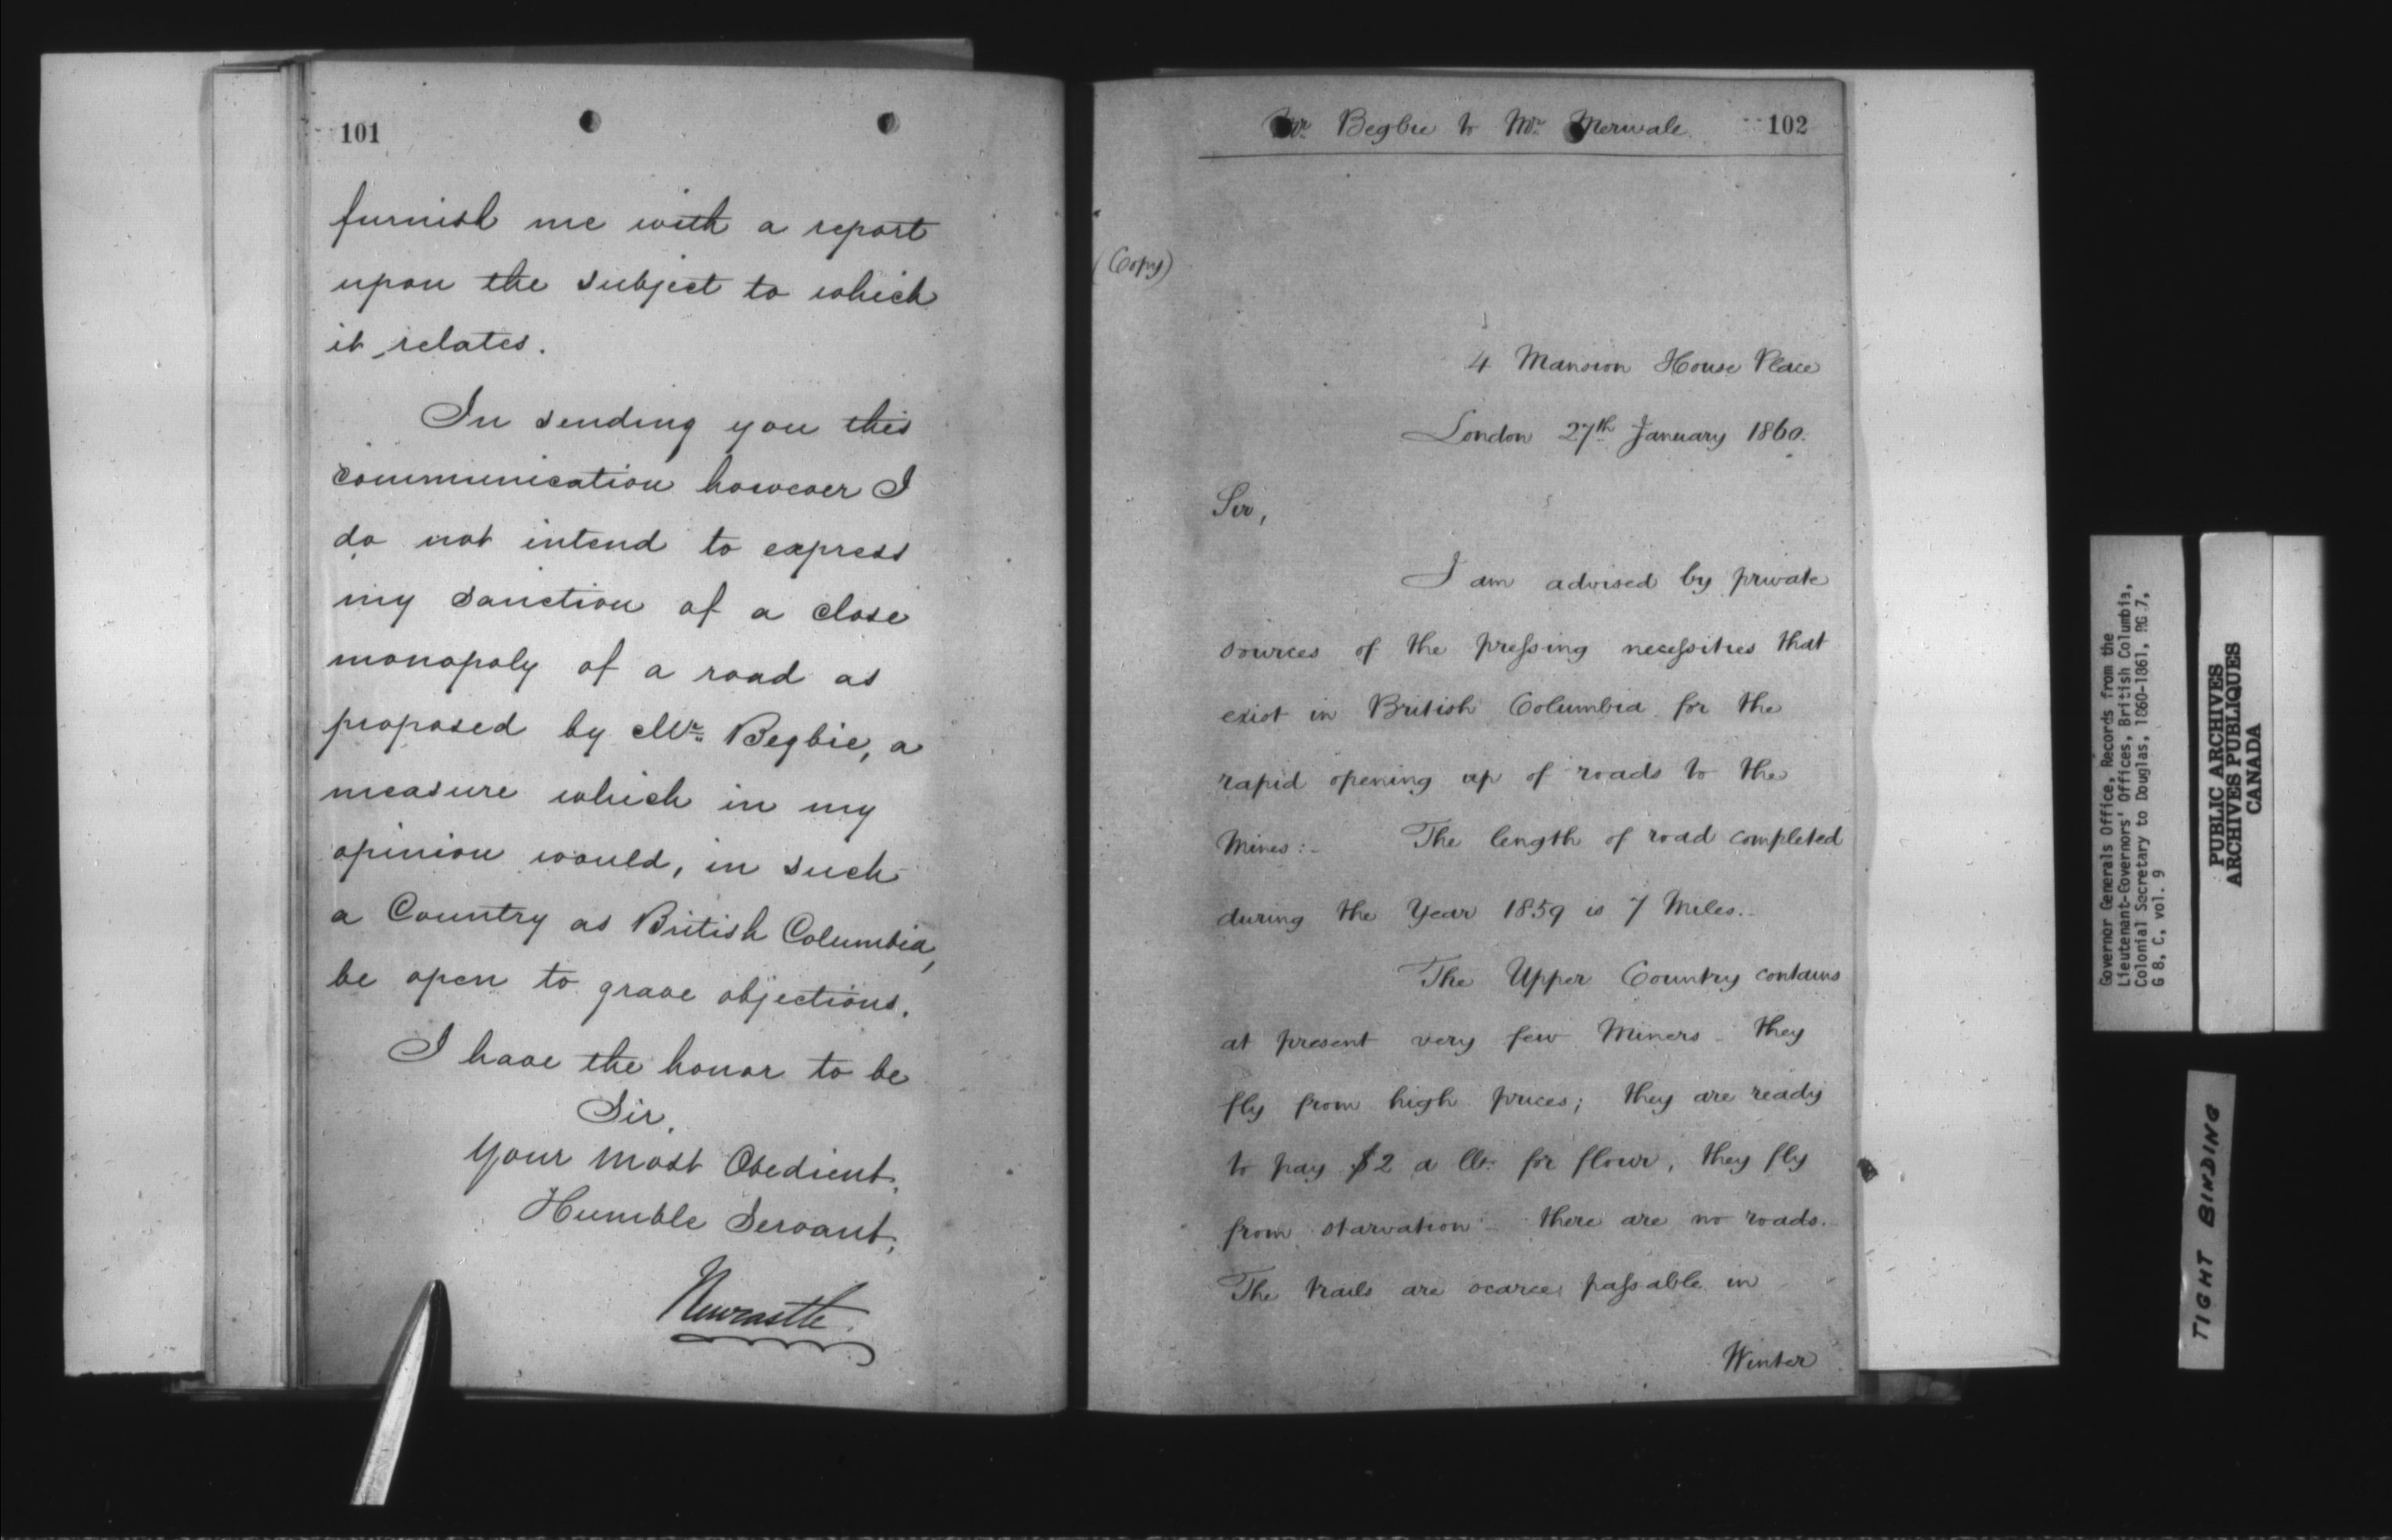 101
furnish me with a report
upon the subject to which
it relates.
In sending you this
communication however I
do not intend to express
my sanction of a close
monopoly of a road as
proposed by Mr. Begbie, a
measure which in my
opinion would, in such
a Country as British Columbia,
be open to grave objections.
I have the honor to be
Sir,
Your most Obedient,
Humble Servant,
Newcastle.
Mr. Begbie to Mr. Merivale. 102
(Copy)
4 Mansion House Place
London 27th January 1860.
Sir,
I am advised by private
sources of the pressing necessities that
exist in British Columbia for the
rapid opening up of roads to the
Mines:- The length of road completed
during the Year 1859 is 7 Miles.-
The Upper Country contains
at present very few Miners - they
fly from high prices; they are ready
to pay $2 a lb. for flour, they fly
from starvation - there are no roads.-
The trails are scarce passable in
Winter
Governor Generals Office, Records from the
Lieutenant-Governors' Offices, British Columbia,
Colonial Secretary to Douglas, 1860-1861, RG 7,
G 8, C, vol. 9
PUBLIC ARCHIVES
ARCHIVES PUBLIQUES
CANADA
TIGHT BINDING